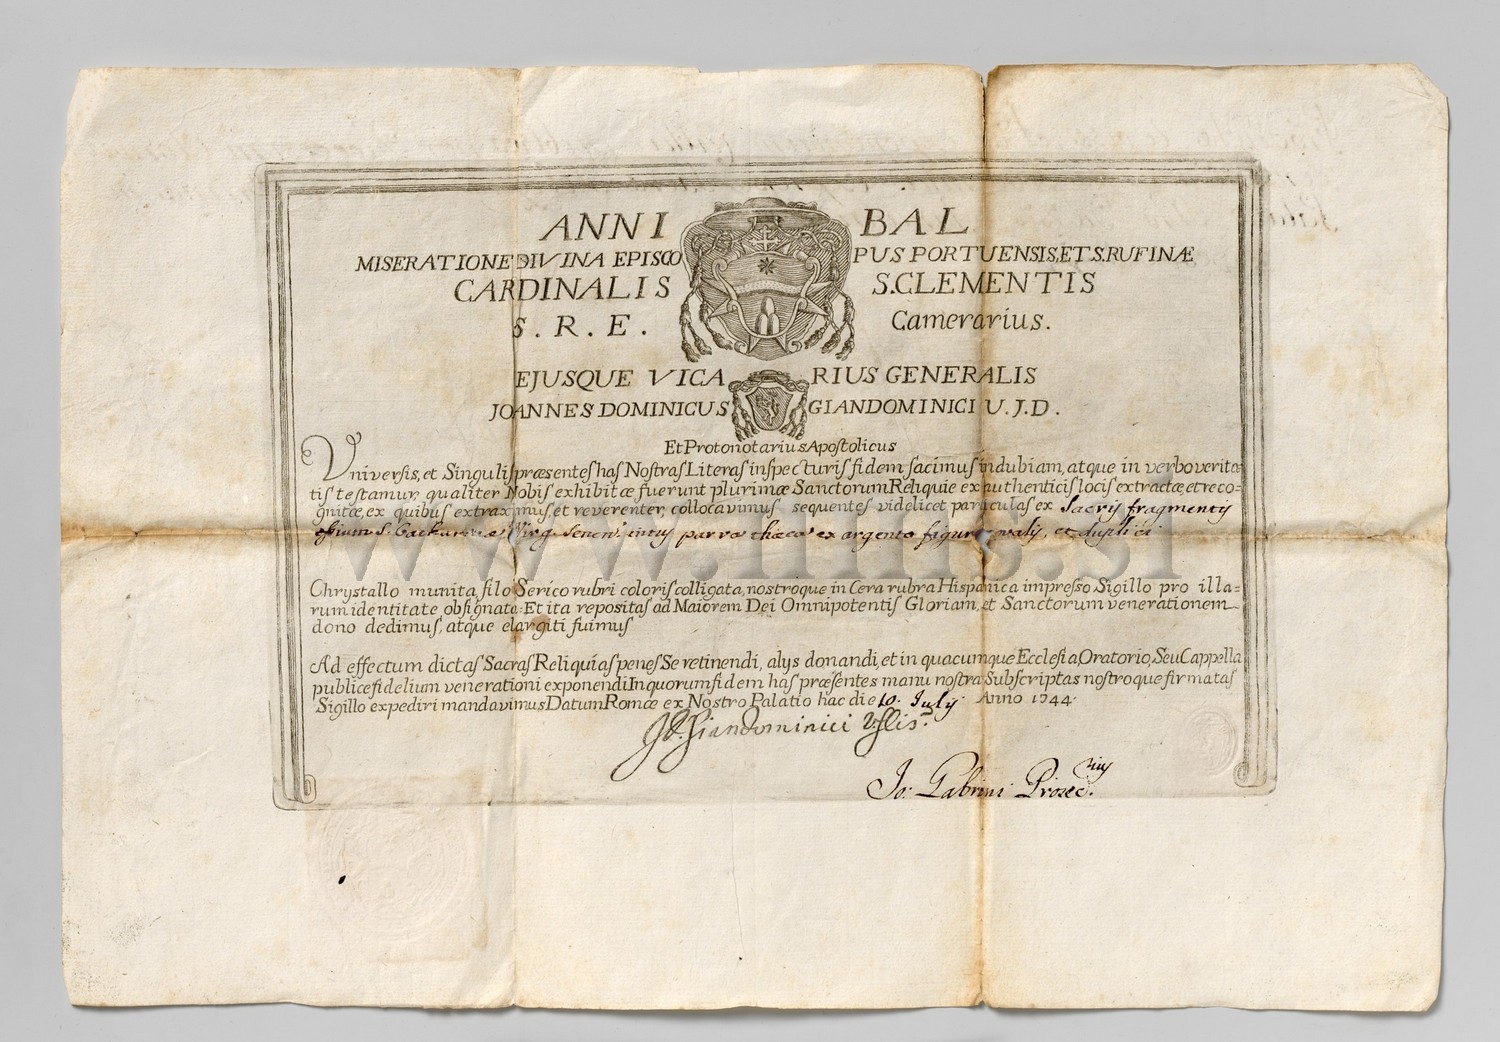 ANNIBAL
MISERATIONE DIVINA EPISCOPUS PORTUENSIS, ET S. RUFINÆ
CARDINALIS S. CLEMENTIS
S. R. E. Camerarius.
EJUSQUE VICARIUS GENERALIS
JOANNES DOMINICUS GIANDOMINICI U. J. D.
Et Protonotarius Apostolicus
Universis, et Singulis præsentes has Nostras Literas inspecturis fidem facimus indubiam, atque in verbo verita=
tis testamur, qualiter Nobis exhibitæ fuerunt plurimæ Sanctorum Reliquie ex authenticis locis extractæ, et reco-
gnitæ, ex quibus extraximus, et reverenter, collocavimus sequentes videlicet particulas ex Sacris fragmentis
ossium S. Virg. Senen. intus parva thæca ex argento figuræ ovalis, et duplici
Chrystallo munita, filo Serico rubri coloris colligata, nostroque in Cera rubra Hispanica impresso Sigillo pro illa-
rum identitate obsignata: Et ita repositas ad Maiorem Dei Omnipotentis Gloriam, et Sanctorum venerationem
dono dedimus, atque elargiti fuimus
Ad effectum dictas Sacras Reliquias penes Se retinendi, alys donandi, et in quacumque Ecclesia, Oratorio, Seu Cappella
publice fidelium venerationi exponendi In quorum fidem has præsentes manu nostra Subscriptas nostroque firmatas
Sigillo expediri mandavimus Datum Romæ ex Nostro Palatio hac die 10. July Anno 1744.
Jo. Giandominici
Jo: Gabrini Prosec.rius
www.nms.si